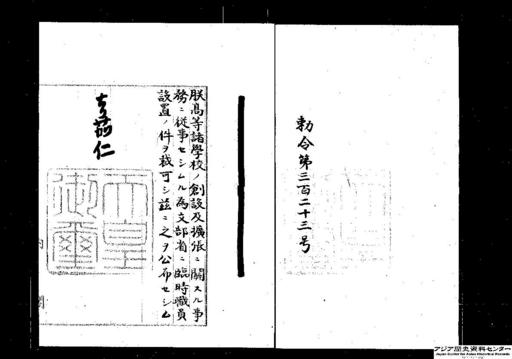 勅令第三百二十三号
朕高等諸學校ノ創設及擴張ニ關スル事
務ニ從事セシムル為文部省ニ臨時職員
設置ノ件ヲ裁可シ茲ニ之ヲ公布セシム
嘉仁
天皇
御璽
内閣
アジア歴史資料センター
Japan Center for Asian Historical Records